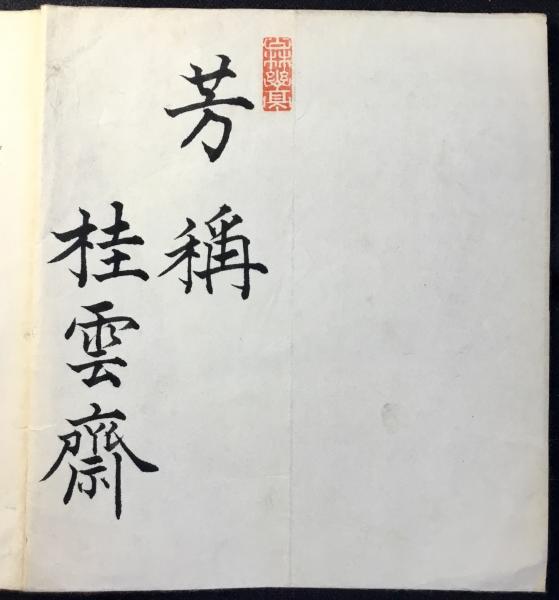 芳稱
桂雲齋